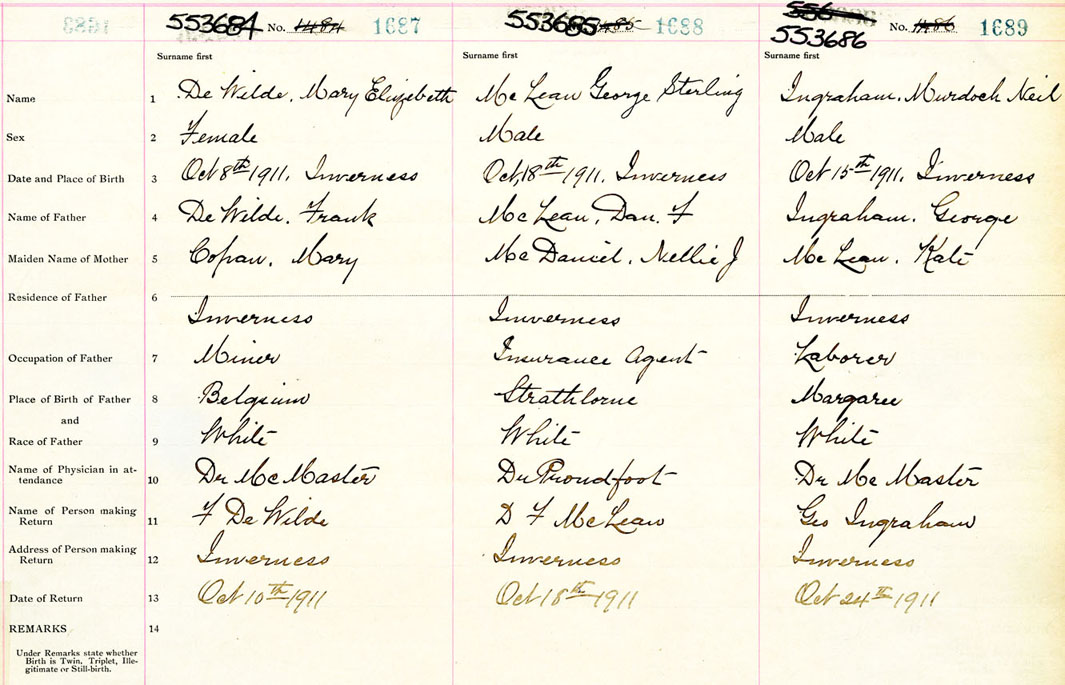 553684 No. 1484 1687 553685 1485 1688 556 553686 No. 1486 1689
Surname first Surname first Surname first
Name 1 De Wilde, Mary Elizebeth Mc Lean George Sterling Ingraham, Murdoch Neil
Sex 2 Female Male Male
Date and Place of Birth 3 Oct 8th 1911. Inverness Oct, 18th 1911. Inverness Oct 15th 1911. Inverness
Name of Father 4 De Wilde, Frank Mc Lean, Dan. F Ingraham. George
Maiden Name of Mother 5 Copan, Mary Mc Daniel, Nellie J Mc Lean, Kate
Residence of Father 6
Inverness Inverness Inverness
Occupation of Father 7 Miner Insurance Agent Laborer
Place of Birth of Father 8 Belgium Strathlorne Margaree
and
Race of Father 9 White White White
Name of Physician in at-
tendance 10 Dr Mc Master Dr Proudfoot Dr Mc Master
Name of Person making
Return 11 F De Wilde D F McLean Geo Ingraham
Address of Person making
Return 12 Inverness Inverness Inverness
Date of Return 13 Oct 10th 1911 Oct 18th 1911 Oct 24th 1911
REMARKS 14
Under Remarks state whether
Birth is Twin, Triplet, Ille-
gitimate or Still-birth.